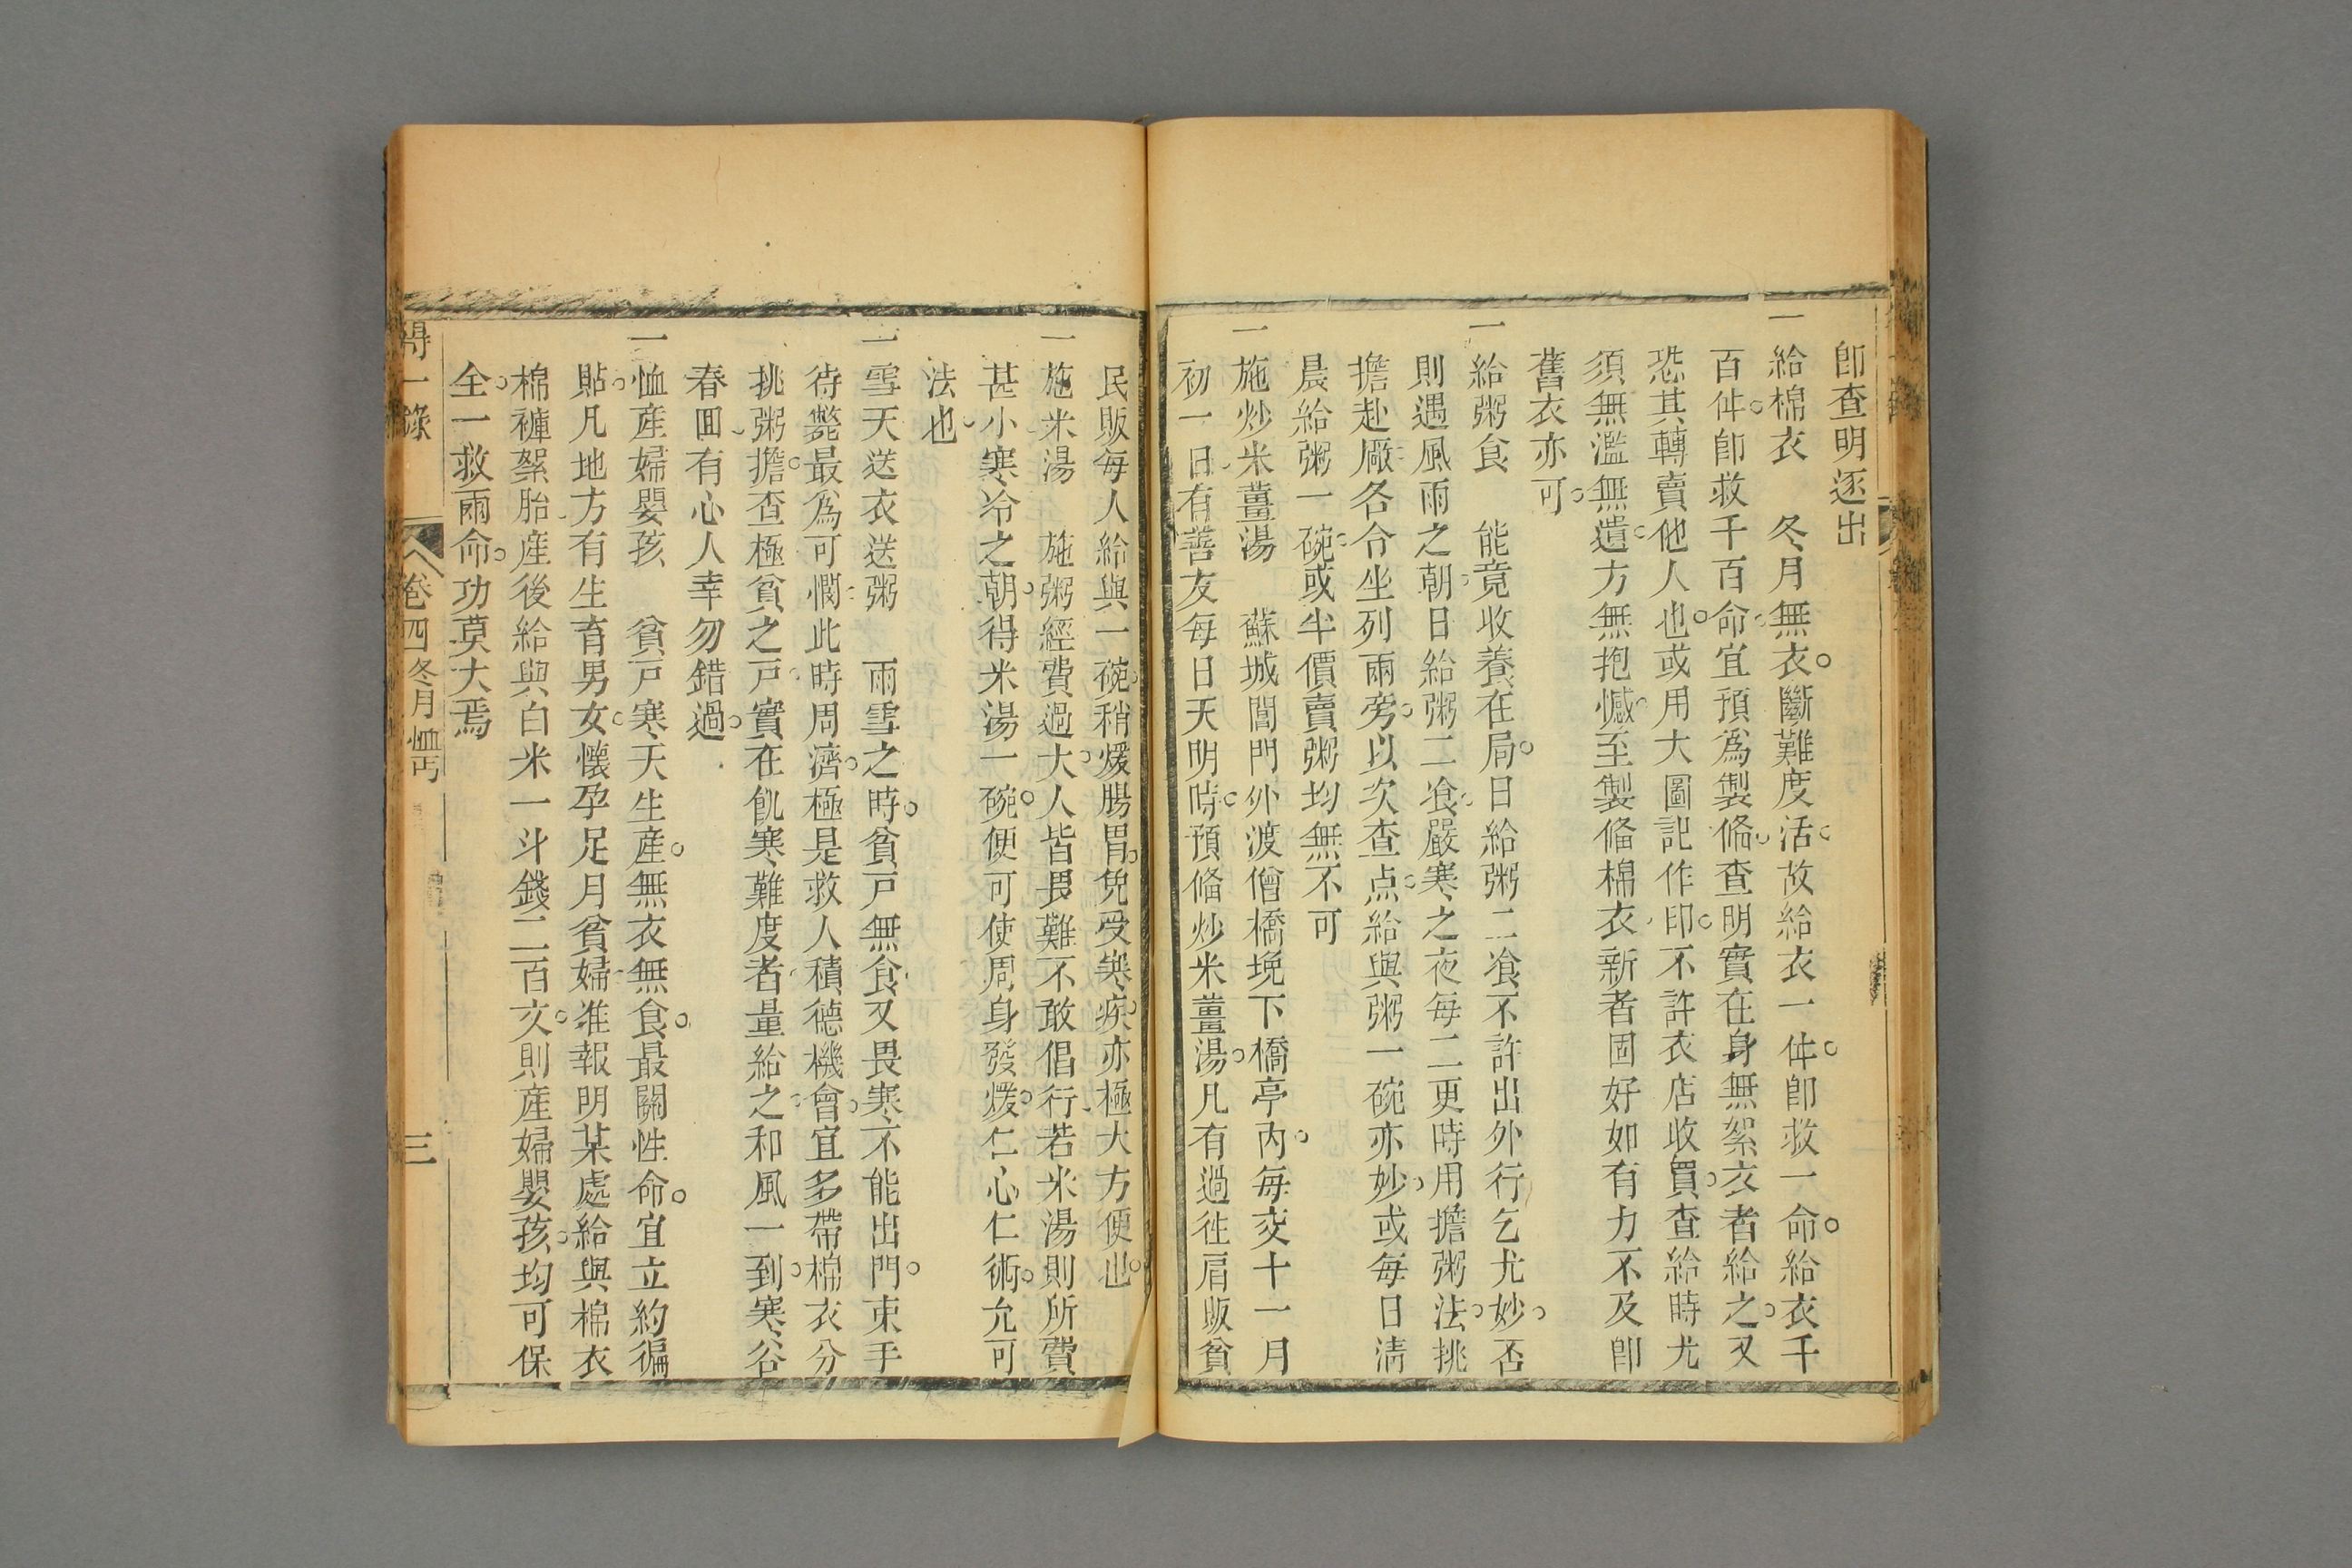 卽查明逐出
一給棉衣 冬月無衣。斷難度活。故給衣一件。卽救一命。給衣千
百件。卽救千百命。宜預爲製俻。查明實在身無絮衣者給之。又
恐其轉賣他人也。或用大圖記作印。不許衣店收買。查給時尤
須無濫無遺。方無抱憾。至製俻棉衣、新者固好如有力不及卽
舊衣亦可。
一給粥食 能竟收養在局。日給粥二飡不許出外行乞尤妙。否
則遇風雨之朝。日給粥二飡。嚴寒之夜每二更時用擔粥法。挑
擔赴廠各合坐列兩旁。以次查点。給與粥一碗亦妙。或每日淸
晨給粥一碗。或半價賣粥均無不可
一施炒米薑湯 蘇城閶門外渡僧橋堍下橋亭內。每交十一月
初一日、有善友每日天明時。預俻炒米薑湯。凡有過徃肩販貧
民販每人給與一碗。稍煖腸胃。免受寒疾。亦極大方便也。
一施米湯 施粥經費過大。人皆畏難不敢倡行、若米湯則所費
甚小寒冷之朝。得米湯一碗。便可使周身發煖。仁心仁術。允可
法也、
一雪天送衣送粥 雨雪之時。貧戸無食、又畏寒不能出門。束手
待斃最爲可憫。此時周濟。極是救人積德機會。宜多帶棉衣分
挑粥擔。查極貧之戸。實在飢寒難度者、量給之。和風一到。寒谷
春囘、有心人幸勿錯過。
一恤產婦嬰孩 貧戸寒天生產。無衣無食。最關性命。宜立約徧
貼。凡地方有生育男女。懷孕足月貧婦、准報明某處給與棉衣
棉褲絮胎、產後給與白米一斗錢二百文。則產婦嬰孩。均可保
全。一救兩命。功莫大焉
得一錄 卷四 冬月恤丐 三